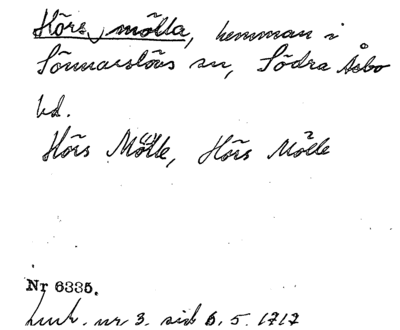 Hörs mölla, hemman i
Sönnarslövs sn, Södra Åsbo
hd.
Hörs Mölle, Hörs Mölle
Nr 6335.
Lunk. nr 3. sid 6. 5. 1717